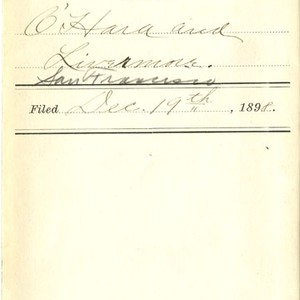 O'Hara and
Livermore.
San Francisco
Filed Dec. 19th, 1898.